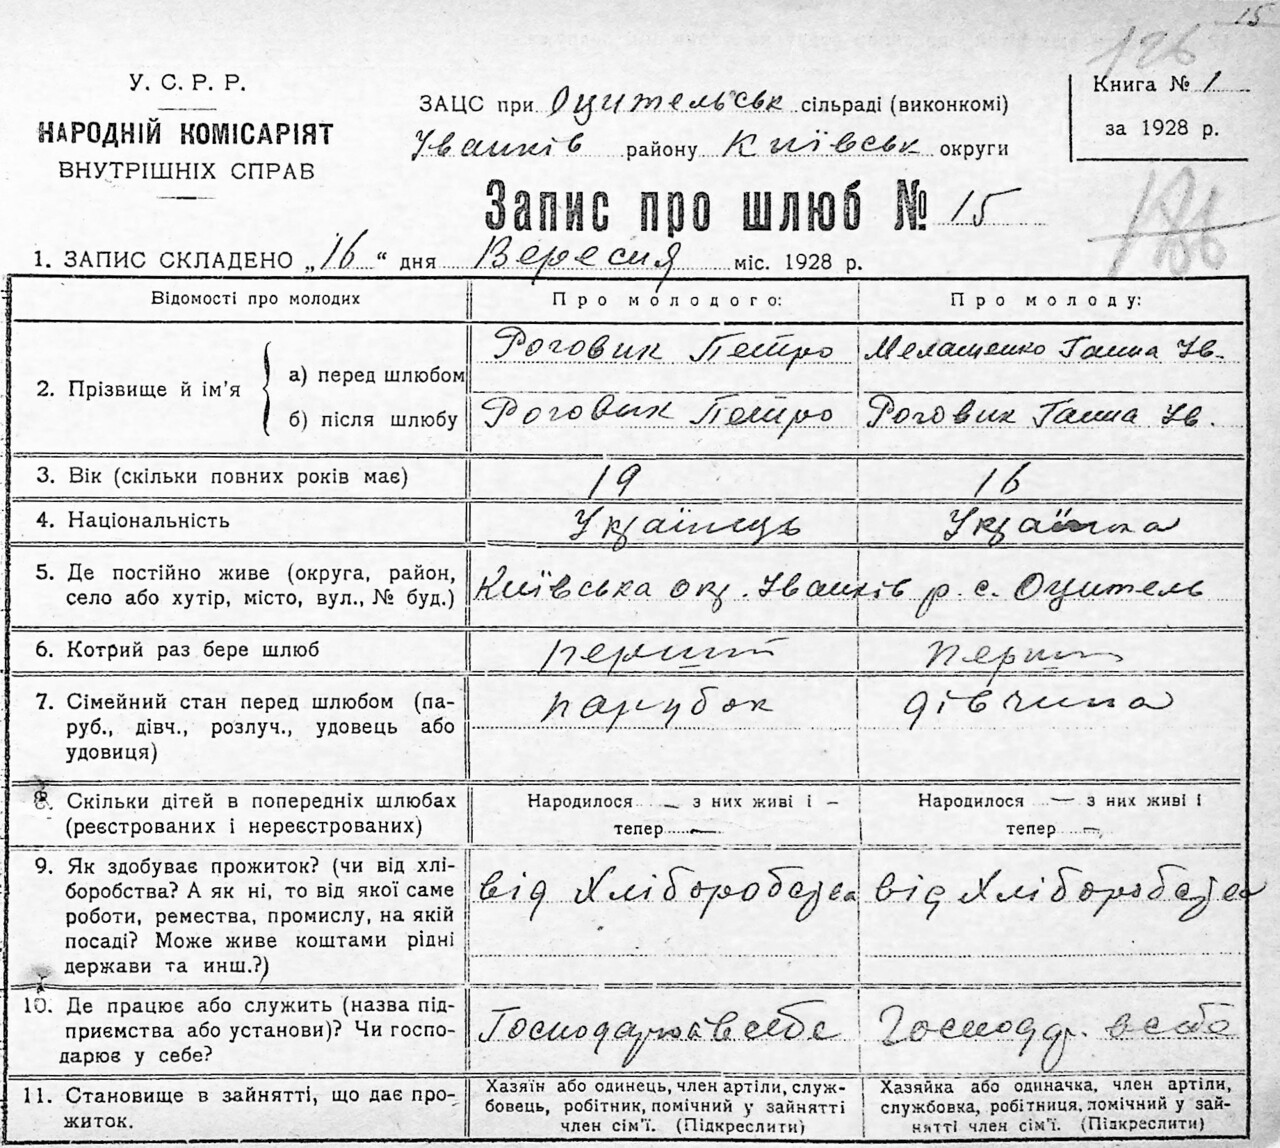 15
126
У. С. Р. Р.
НАРОДНІЙ КОМІСАРІЯТ
ВНУТРІШНІХ СПРАВ
ЗАЦС при Оцительськ сільраді (виконкомі)
Іванків району Київськ округи
Книга № 1
за 1928 р.
Запис про шлюб № 15
1. ЗАПИС СКЛАДЕНО „16" дня Вересня міс. 1928 р.
Відомості про молодих
Про молодого:
Про молоду:
2. Прізвище й ім'я
а) перед шлюбом
Роговик Петро
Мелащенко Ганна Ів.
б) після шлюбу
Роговик Петро
Роговик Ганна Ів.
3. Вік (скільки повних років має)
19
16
4. Національність
Українець
Українка
5. Де постійно живе (округа, район,
село або хутір, місто, вул., № буд.)
Київська окр. Іванків р. с. Оцитель
6. Котрий раз бере шлюб
перший
перший
7. Сімейний стан перед шлюбом (па-
руб., дівч., розлуч., удовець або
удовиця)
парубок
дівчина
8. Скільки дітей в попередніх шлюбах
(реєстрованих і нереєстрованих)
Народилося — з них живі і —
тепер —
Народилося — з них живі і
тепер —
9. Як здобуває прожиток? (чи від хлі-
боробства? А як ні, то від якої саме
роботи, ремества, промислу, на якій
посаді? Може живе коштами рідні
держави та инш.?)
від Хліборобства
від Хліборобства
10. Де працює або служить (назва під-
приємства або установи)? Чи госпо-
дарює у себе?
Господар. в себе
11. Становище в зайнятті, що дає про-
житок.
Хазяїн або одинець, член артіли, служ-
бовець, робітник, помічний у зайнятті
член сім'ї. (Підкреслити)
Хазяйка або одиначка, член артіли,
службовка, робітниця, помічний у зай-
нятті член сім'ї. (Підкреслити)